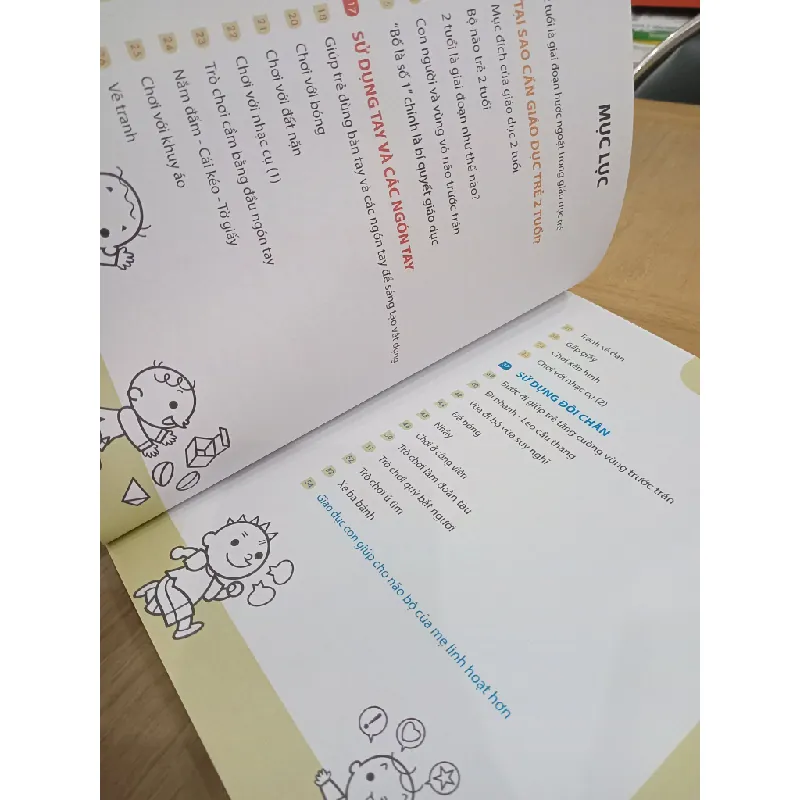 MỤC LỤC
tuổi là giai đoạn bước ngoặt trong giáo dục trẻ
TẠI SAO CẦN GIÁO DỤC TRẺ 2 TUỔI?
Mục đích của giáo dục 2 tuổi
Bộ não trẻ 2 tuổi
2 tuổi là giai đoạn như thế nào?
Con người và vùng vỏ não trước trán
"Bố là số 1" chính là bí quyết giáo dục
17 SỬ DỤNG TAY VÀ CÁC NGÓN TAY
19 Giúp trẻ dùng bàn tay và các ngón tay để sáng tạo vật dụng
20 Chơi với bóng
21 Chơi với đất nặn
22 Chơi với nhạc cụ (1)
23 Trò chơi cầm bằng đầu ngón tay
24 Nắm đấm - Cái kéo - Tờ giấy
25 Chơi với khuy áo
Vẽ tranh
Tranh xé dán
Gấp giấy
Chơi xếp hình
Chơi với nhạc cụ (2)
SỬ DỤNG ĐÔI CHÂN
Bước đi giúp trẻ tăng cường vùng trước trán
Đi nhanh - Leo cầu thang
Vừa đi bộ vừa suy nghĩ
Đá bóng
Nhảy
Chơi ở công viên
Trò chơi làm đoàn tàu
Trò chơi quỷ bắt người
Trò chơi ú tìm
Xe ba bánh
Giáo dục con giúp cho não bộ của mẹ linh hoạt hơn